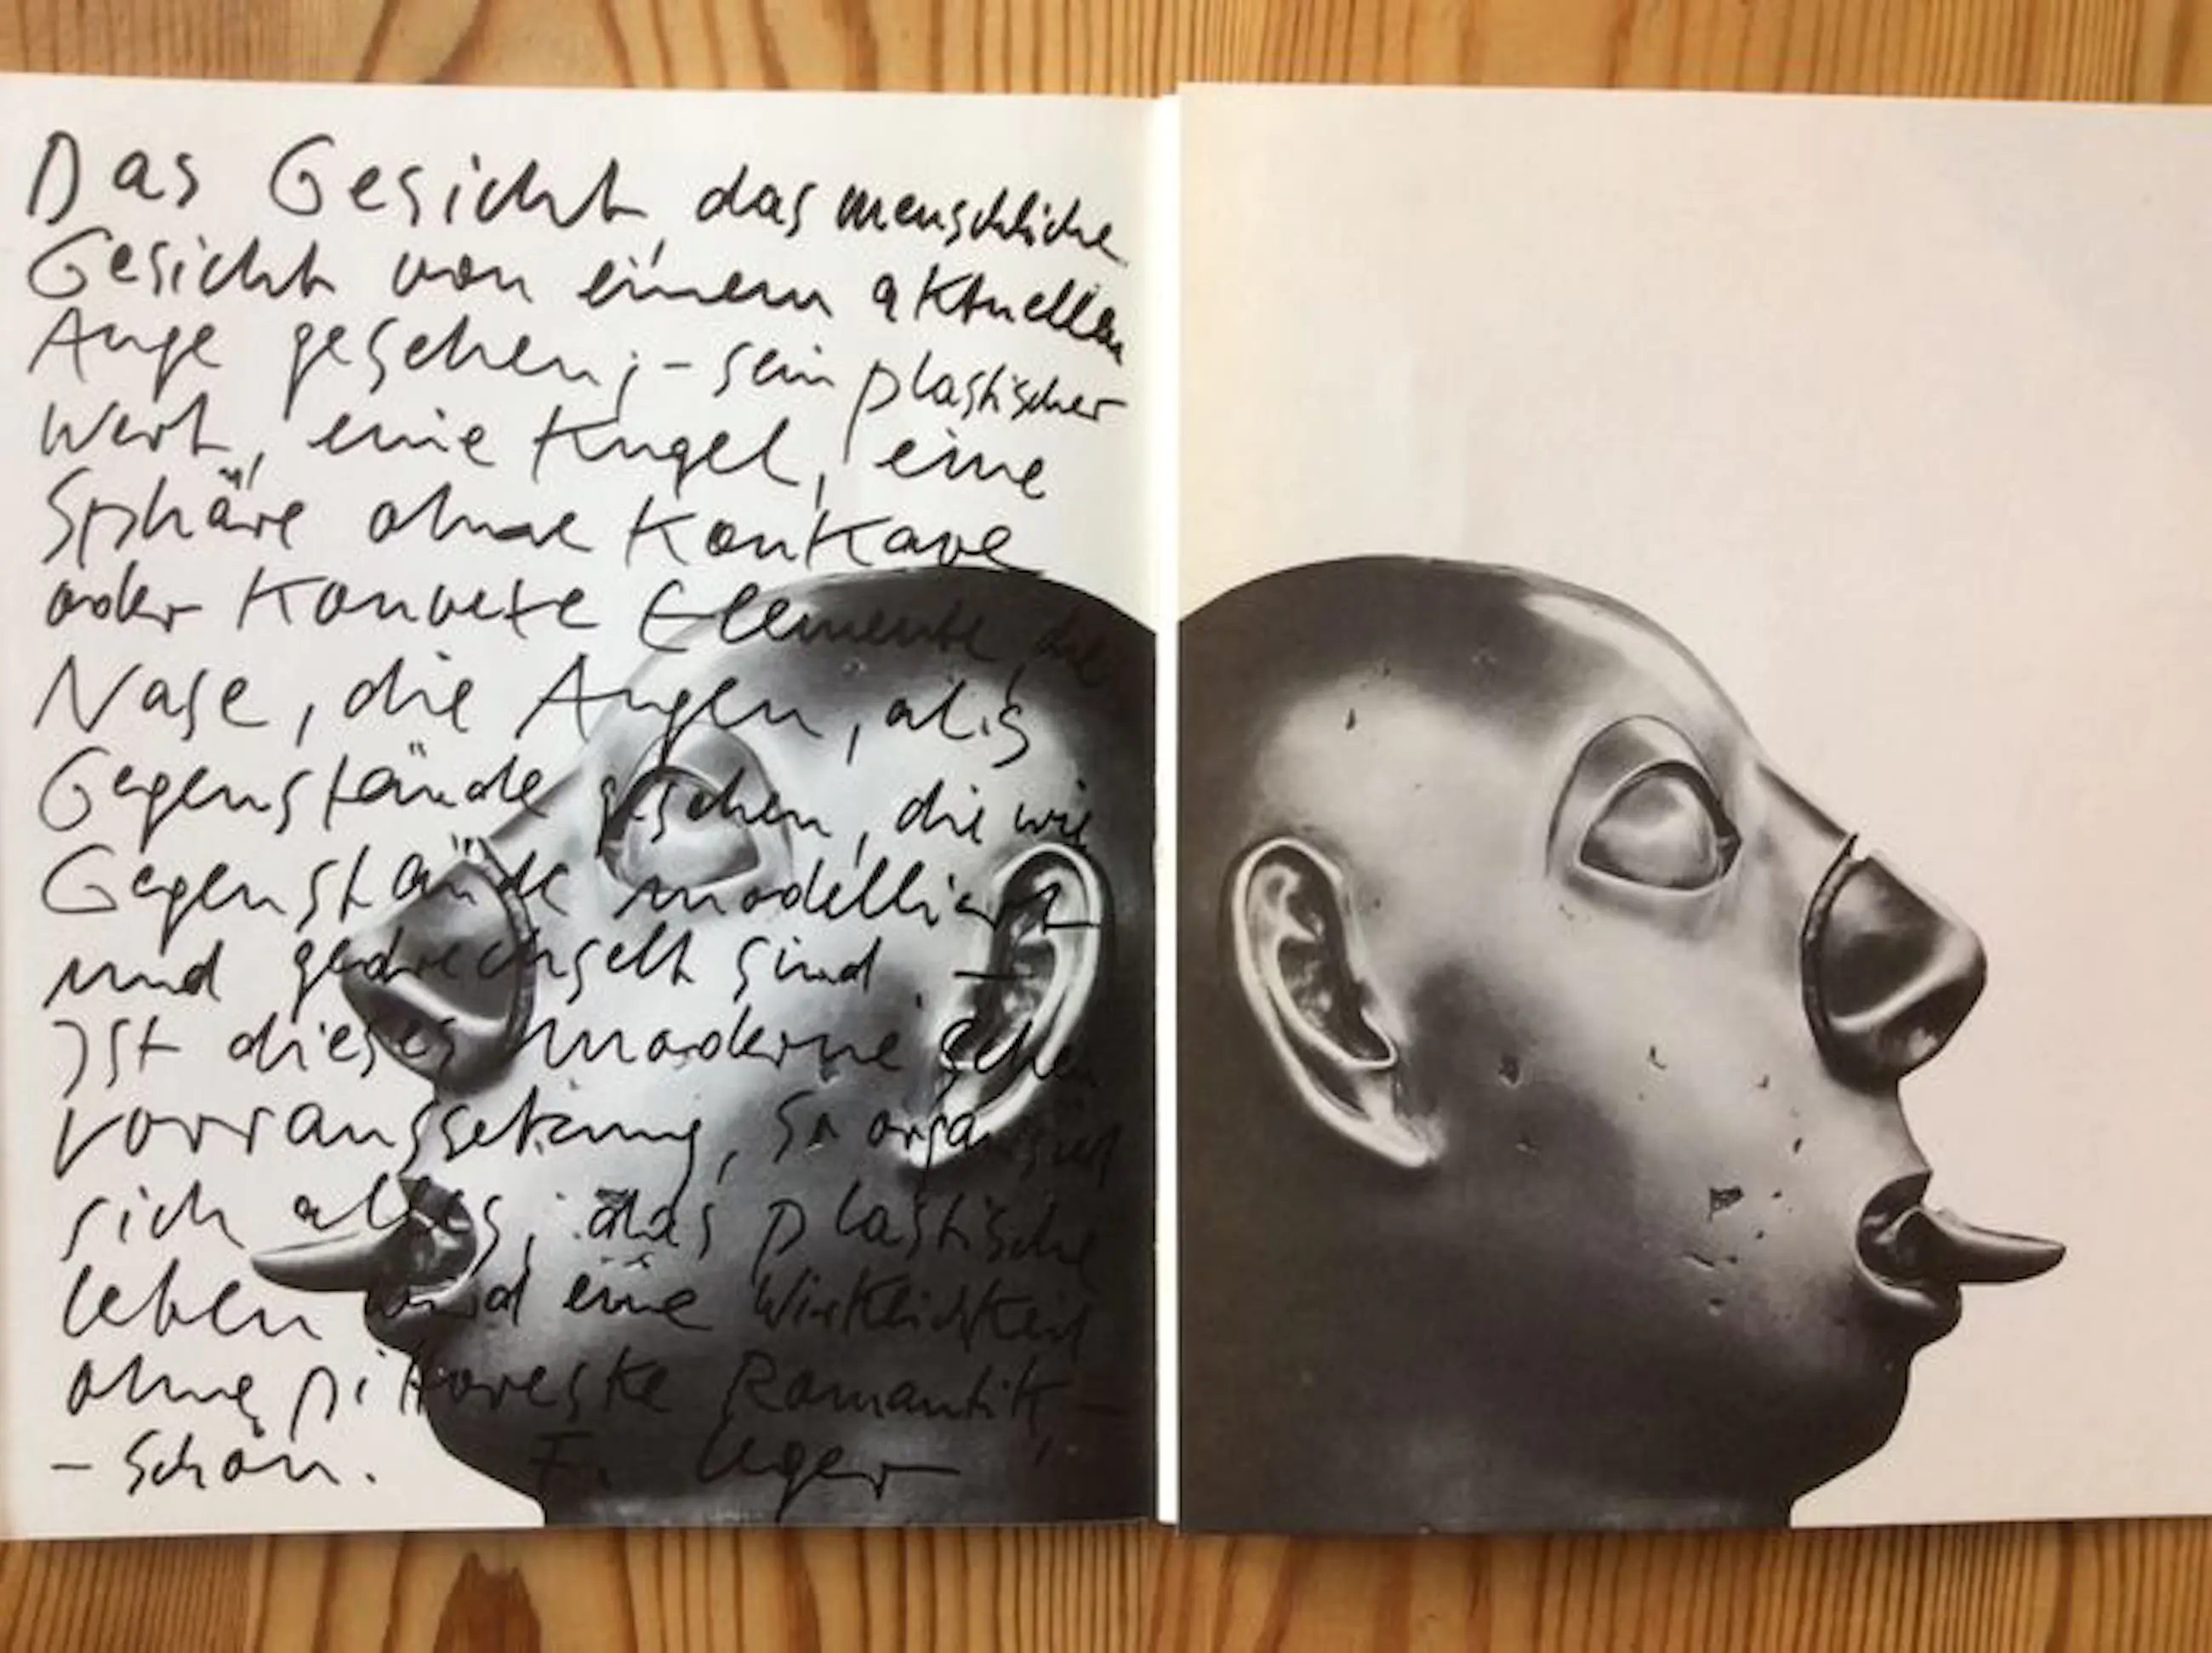 Das Gesicht, das menschliche
Gesicht von einem aktuellen
Auge gesehen; – sein plastischer
Wert, eine Kugel, eine
Sphäre ohne Konkave
oder Konvexe Elemente, die
Nase, die Augen, als
Gegenstände gesehen, die wie
Gegenstände modelliert
und gedrechselt sind. –
Ist dieses moderne Sehen
Vorraussetzung, so organisiert
sich alles, das plastische
Leben wird eine Wirklichkeit
ohne pittoreske Romantik –
– Schön. F. Leger